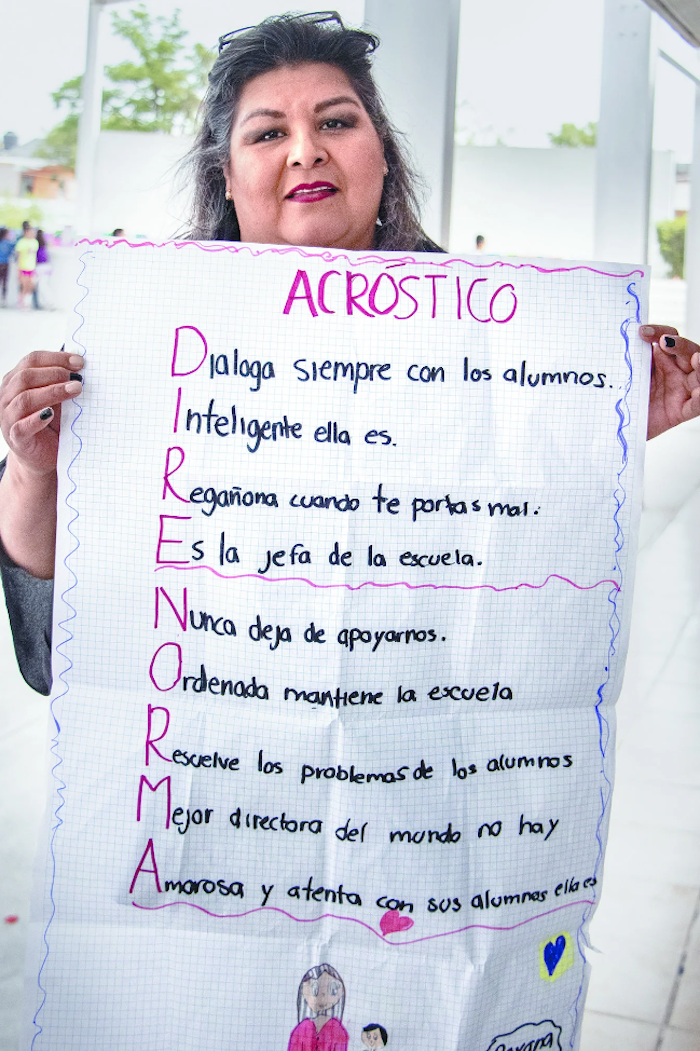 ACRÓSTICO
Dialoga siempre con los alumnos..
Inteligente ella es.
Regañona cuando te portas mal.
Es la jefa de la escuela.
Nunca deja de apoyarnos.
Ordenada mantiene la escuela
Resuelve los problemas de los alumnos
Mejor directora del mundo no hay
Amorosa y atenta con sus alumnos ella es